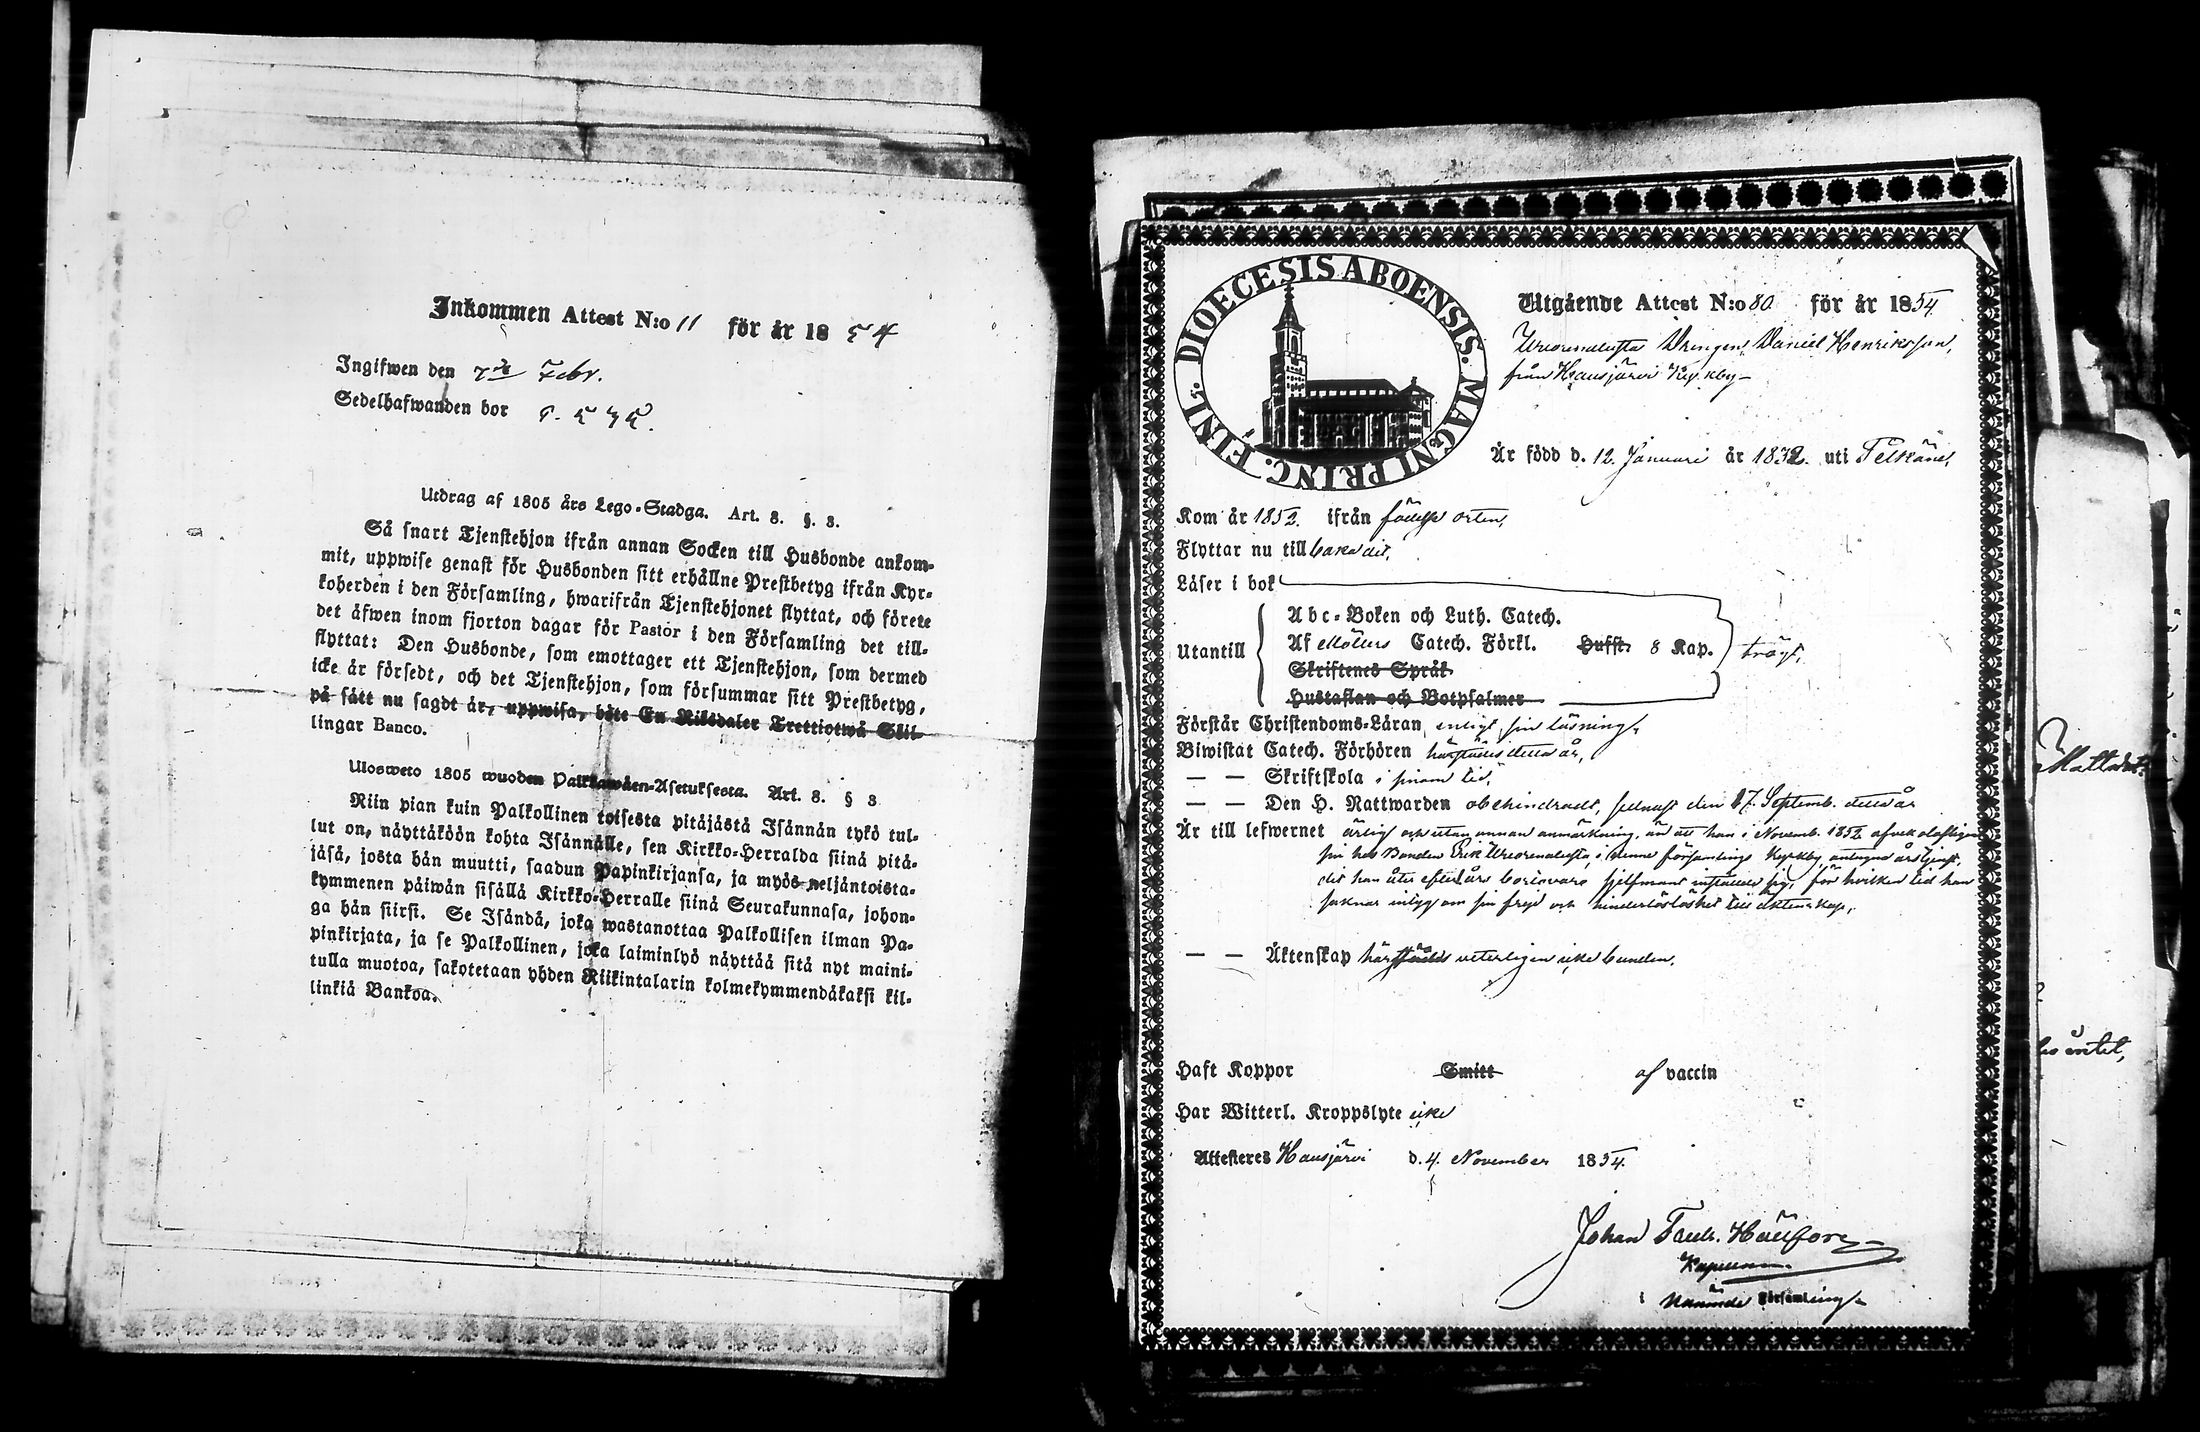 Inkommen Attest N:o 11 för år 1854
Ingifwen den 7de Febr.
Sedelhafwanden bor
Utdrag af 1805 års Lego-Stadga. Art. 8. §. 3.
Så snart Tjenstehjon ifrån annan Socken till Husbonde ankom-
mit, uppwise genast för Husbonden sitt erhållne Prestbetyg ifrån Kyr-
koherden i den Församling, hwarifrån Tjenstehjonet flyttat, och förete
det äfwen inom fjorton dagar för Pastor i den Församling det till-
flyttat: Den Husbonde, som emottager ett Tjenstehjon, som dermed
icke är försedt, och det Tjenstehjon, som försummar sitt Prestbetyg,
på sätt nu sagdt är, uppwisa, böte En Riksdaler Trettiotwå Skil-
lingar Banco.
Ulosweto 1805 wuoden Palkkawäen-Asetuksesta. Art. 8. § 3
Niin pian kuin Palkollinen toisesta pitäjästä Isännän tykö tul-
lut on, näyttäköön kohta Isännälle, sen Kirkko-Herralda siinä pitä-
jäsä, josta hän muutti, saadun Papinkirjansa, ja myös neljäntoista-
kymmenen päiwän sisällä Kirkko-Herralle siinä Seurakunnasa, johon-
ga hän siirsi. Se Isändä, joka wastanottaa Palkollisen ilman Pa-
pinkirjata, ja se Palkollinen, joka laiminlyö näyttää sitä nyt maini-
tulla muotoa, sakotetaan yhden Riikintalarin kolmekymmendäkaksi kil-
linkiä Bankoa.
DIOECESIS ABOENSIS. MAGNI PRINC. FINL.
Utgående Attest N:o 80 för år 1854
Drängen, Daniel Henriksson,
från Hausjärvi Kyrkby
Är född d. 12. Januari år 1832. uti Pelkäne,
Kom år 1852. ifrån födelse orten,
Flyttar nu till baka dit,
Läser i bok
Utantill
Abc-Boken och Luth. Catech.
Af Möllers Catech. Förkl. Hufst. 8 Kap. trögt,
Skriftenes Språk
Hustaflan och Botpsalmer
Förstår Christendoms-Läran enligt sin läsning,
Biwistat Catech. Förhören härstädes detta år,
— — Skriftskola i sinom tid,
— — Den H. Nattwarden obehindradt, senast den 17. Septemb. detta år
Är till lefwernet ärlig och utan annan anmärkning, än att han i Novemb. 1852 afvek olofligen
från hos Bonden Erik i denne församlings Kyrkby antagne årstjenst,
det han åter efter års bortovaro sjelfmant inställde sig, för hvilken tid han
saknar intyg om sin frejd och hinderslöshet till äktenskap,
— — Äktenskap härstädes veterligen icke bunden.
Haft Koppor Smitt af vaccin
Har Witterl. Kroppslyte icke
Attesteres Hausjärvi d. 4. November 1854.
Johan
Kapellan
i Nämnde Församling